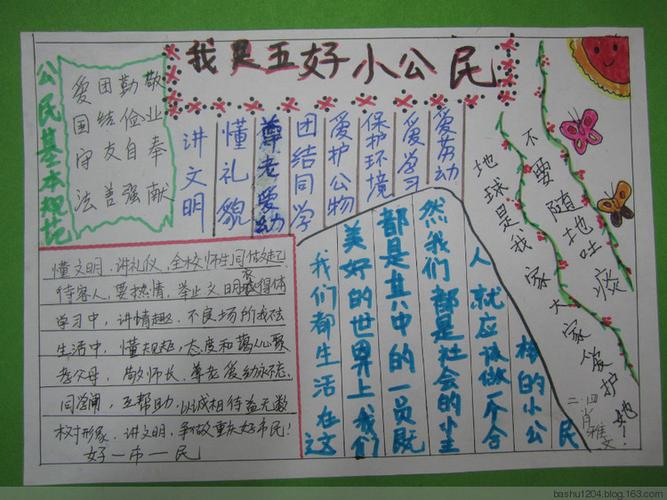 我是五好小公民
公民基本规范
爱国守法
团结友善
勤俭自强
敬业奉献
讲文明
懂礼貌
尊老爱幼
团结同学
爱护公物
保护环境
爱学习
爱劳动
不要随地吐痰
地球是我家大家爱护她！
懂文明，讲礼仪，全校师生同做起
待客人，要热情，举止文明要得体
学习中，讲情趣，不良场所我不去
生活中，懂规矩，态度和蔼
孝父母，敬师长，尊老爱幼
同学间，互帮助，以诚相待
树形象，讲文明，争做重庆好市民！
好一市一民
我们都生活在这
美好的世界上我们
都是其中的一员既
然我们都是社会的小主
人就应该做一个合
格的小公
民
二四
肖雅文
bashu1204.blog.163.com